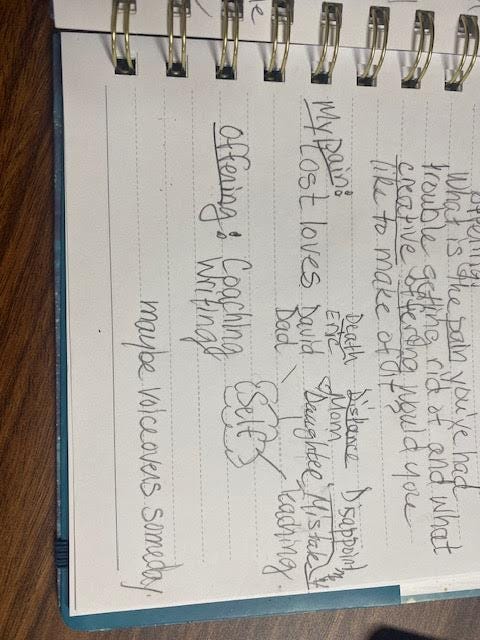 What is the pain you've had
trouble getting rid of and what
creative offering would you
like to make of it?
Death Distance Disappointment
My pain: Eric Mom Mistakes
Lost loves David Daughter
Dad
Offering: Coaching Self teaching
Writing
maybe voiceovers someday.